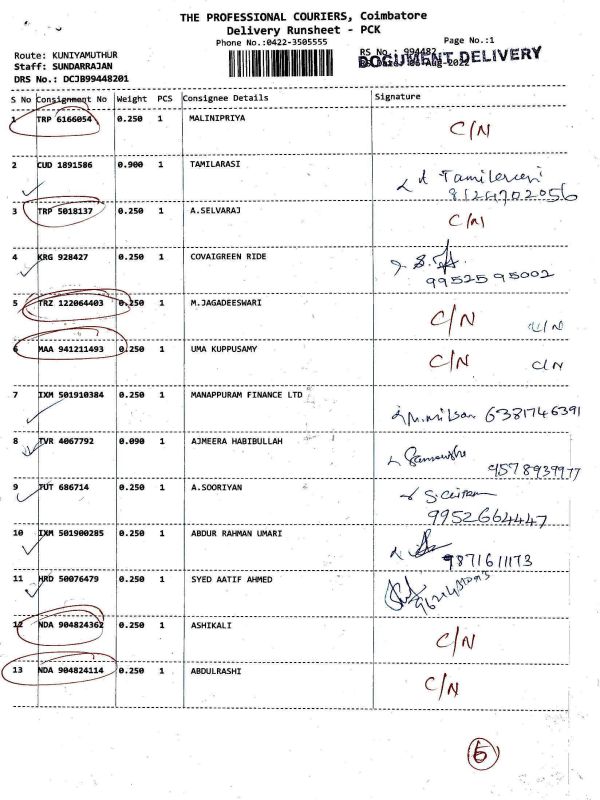 THE PROFESSIONAL COURIERS, Coimbatore
Delivery Runsheet - PCK
Phone No.:0422-3505555
Page No.:1
Route: KUNIYAMUTHUR
RS No.: 994482
Staff: SUNDARRAJAN
DOCUMENT DELIVERY
DRS No.: DCJB99448201
S No Consignment No Weight PCS Consignee Details Signature
1 TRP 6166054 0.250 1 MALINIPRIYA C/N
2 CUD 1891586 0.900 1 TAMILARASI
8124702056
3 TRP 5018137 0.250 1 A.SELVARAJ C/N
4 KRG 928427 0.250 1 COVAIGREEN RIDE
9952595002
5 TRZ 122064403 0.250 1 M.JAGADEESWARI C/N C/N
6 MAA 941211493 0.250 1 UMA KUPPUSAMY C/N C/N
7 IXM 501910384 0.250 1 MANAPPURAM FINANCE LTD 6381746391
8 TVR 4067792 0.090 1 AJMEERA HABIBULLAH
9578939977
9 TUT 686714 0.250 1 A.SOORIYAN
9952664447
10 IXM 501900285 0.250 1 ABDUR RAHMAN UMARI
9871611173
11 HRD 50076479 0.250 1 SYED AATIF AHMED
12 NDA 904824362 0.250 1 ASHIKALI C/N
13 NDA 904824114 0.250 1 ABDULRASHI C/N
5